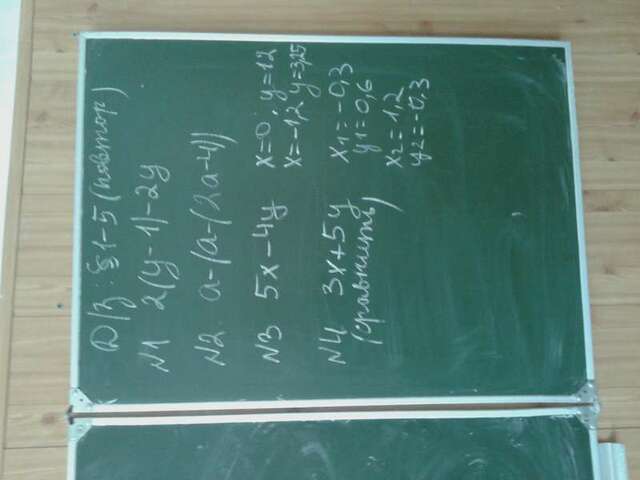 Д/з: §1-5 (повтор)
N1 2(y-1)-2y
N2 a-(a-(2a-4))
N3 5x-4y x=0, y=12
x=-1,2 y=3,25
N4 3x+5y x1=-0,3
(сравнить) y1=0,6
x2=1,2
y2=-0,3